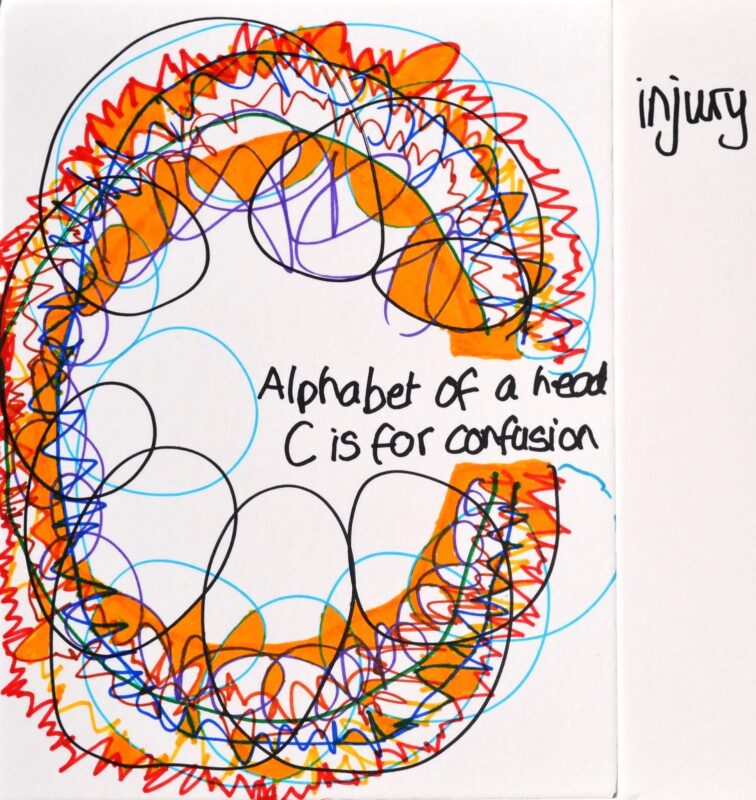 Alphabet of a head injury
C is for confusion